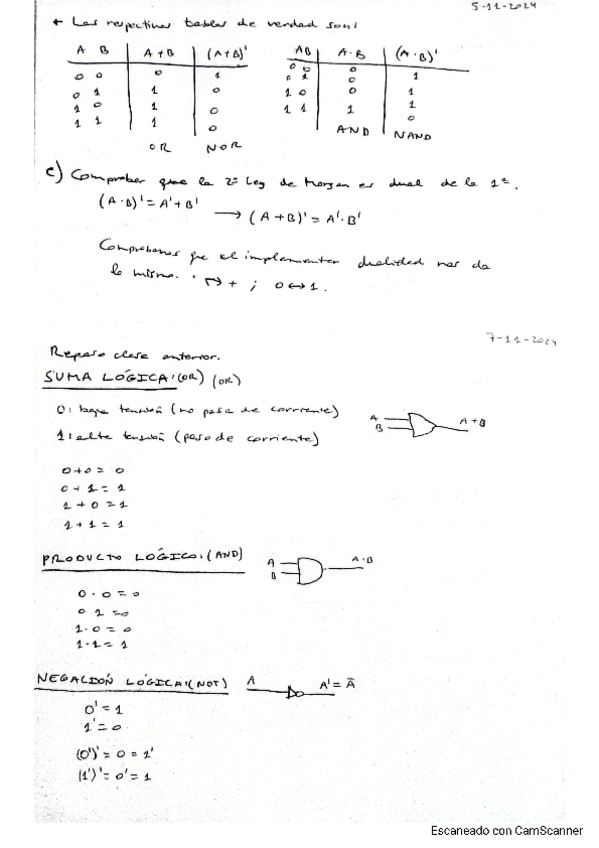 5-11-2024
* Las respectivas tablas de verdad son:
A B | A+B | (A+B)'
0 0 | 0 | 1
0 1 | 1 | 0
1 0 | 1 | 0
1 1 | 1 | 0
OR NOR
A B | A·B | (A·B)'
0 0 | 0 | 1
0 1 | 0 | 1
1 0 | 0 | 1
1 1 | 1 | 0
AND NAND
c) Comprobar que la 2ª Ley de Morgan es dual de la 1ª.
(A·B)' = A'+B'
→ (A+B)' = A'·B'
Comprobamos que al implementar dualidad nos da
lo mismo. · ↔ + ; 0 ↔ 1.
7-11-2024
Repaso clase anterior.
SUMA LÓGICA:(OR) (OR)
0: baja tensión (no pasa de corriente)
A
B
A+B
1: alta tensión (paso de corriente)
0+0 = 0
0+1 = 1
1+0 = 1
1+1 = 1
PRODUCTO LÓGICO:(AND)
A
B
A·B
0·0 = 0
0·1 = 0
1·0 = 0
1·1 = 1
NEGACIÓN LÓGICA:(NOT)
A
A' = Ā
0' = 1
1' = 0
(0')' = 0 = 1'
(1')' = 0' = 1
Escaneado con CamScanner